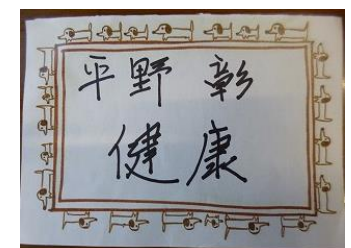 平野 彰
健康